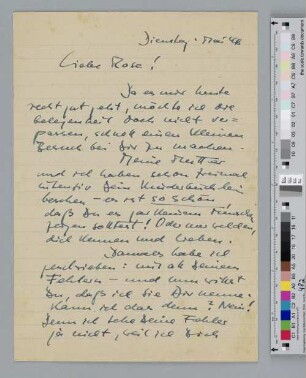 Dienstag. Mai 48
Liebe Rose!
Da es mir heute
recht gut geht, möchte ich die
Gelegenheit doch nicht ver-
passen, schnell einen kleinen
Besuch bei Dir zu machen.
Meine Mutter
und ich haben schon
intensiv Dein Kinderbüchlein
besehen – es ist so schön,
daß Du es gar keinem Menschen
zeigen solltest! Oder nur solchen,
die Dich kennen und lieben.
Damals habe ich
geschrieben: mit all Deinen
Fehlern – und nun willst
Du, daß ich sie Dir nenne.
Kann ich das denn? Nein!
Denn ich sehe Deine Fehler
ja nicht, weil ich Dich